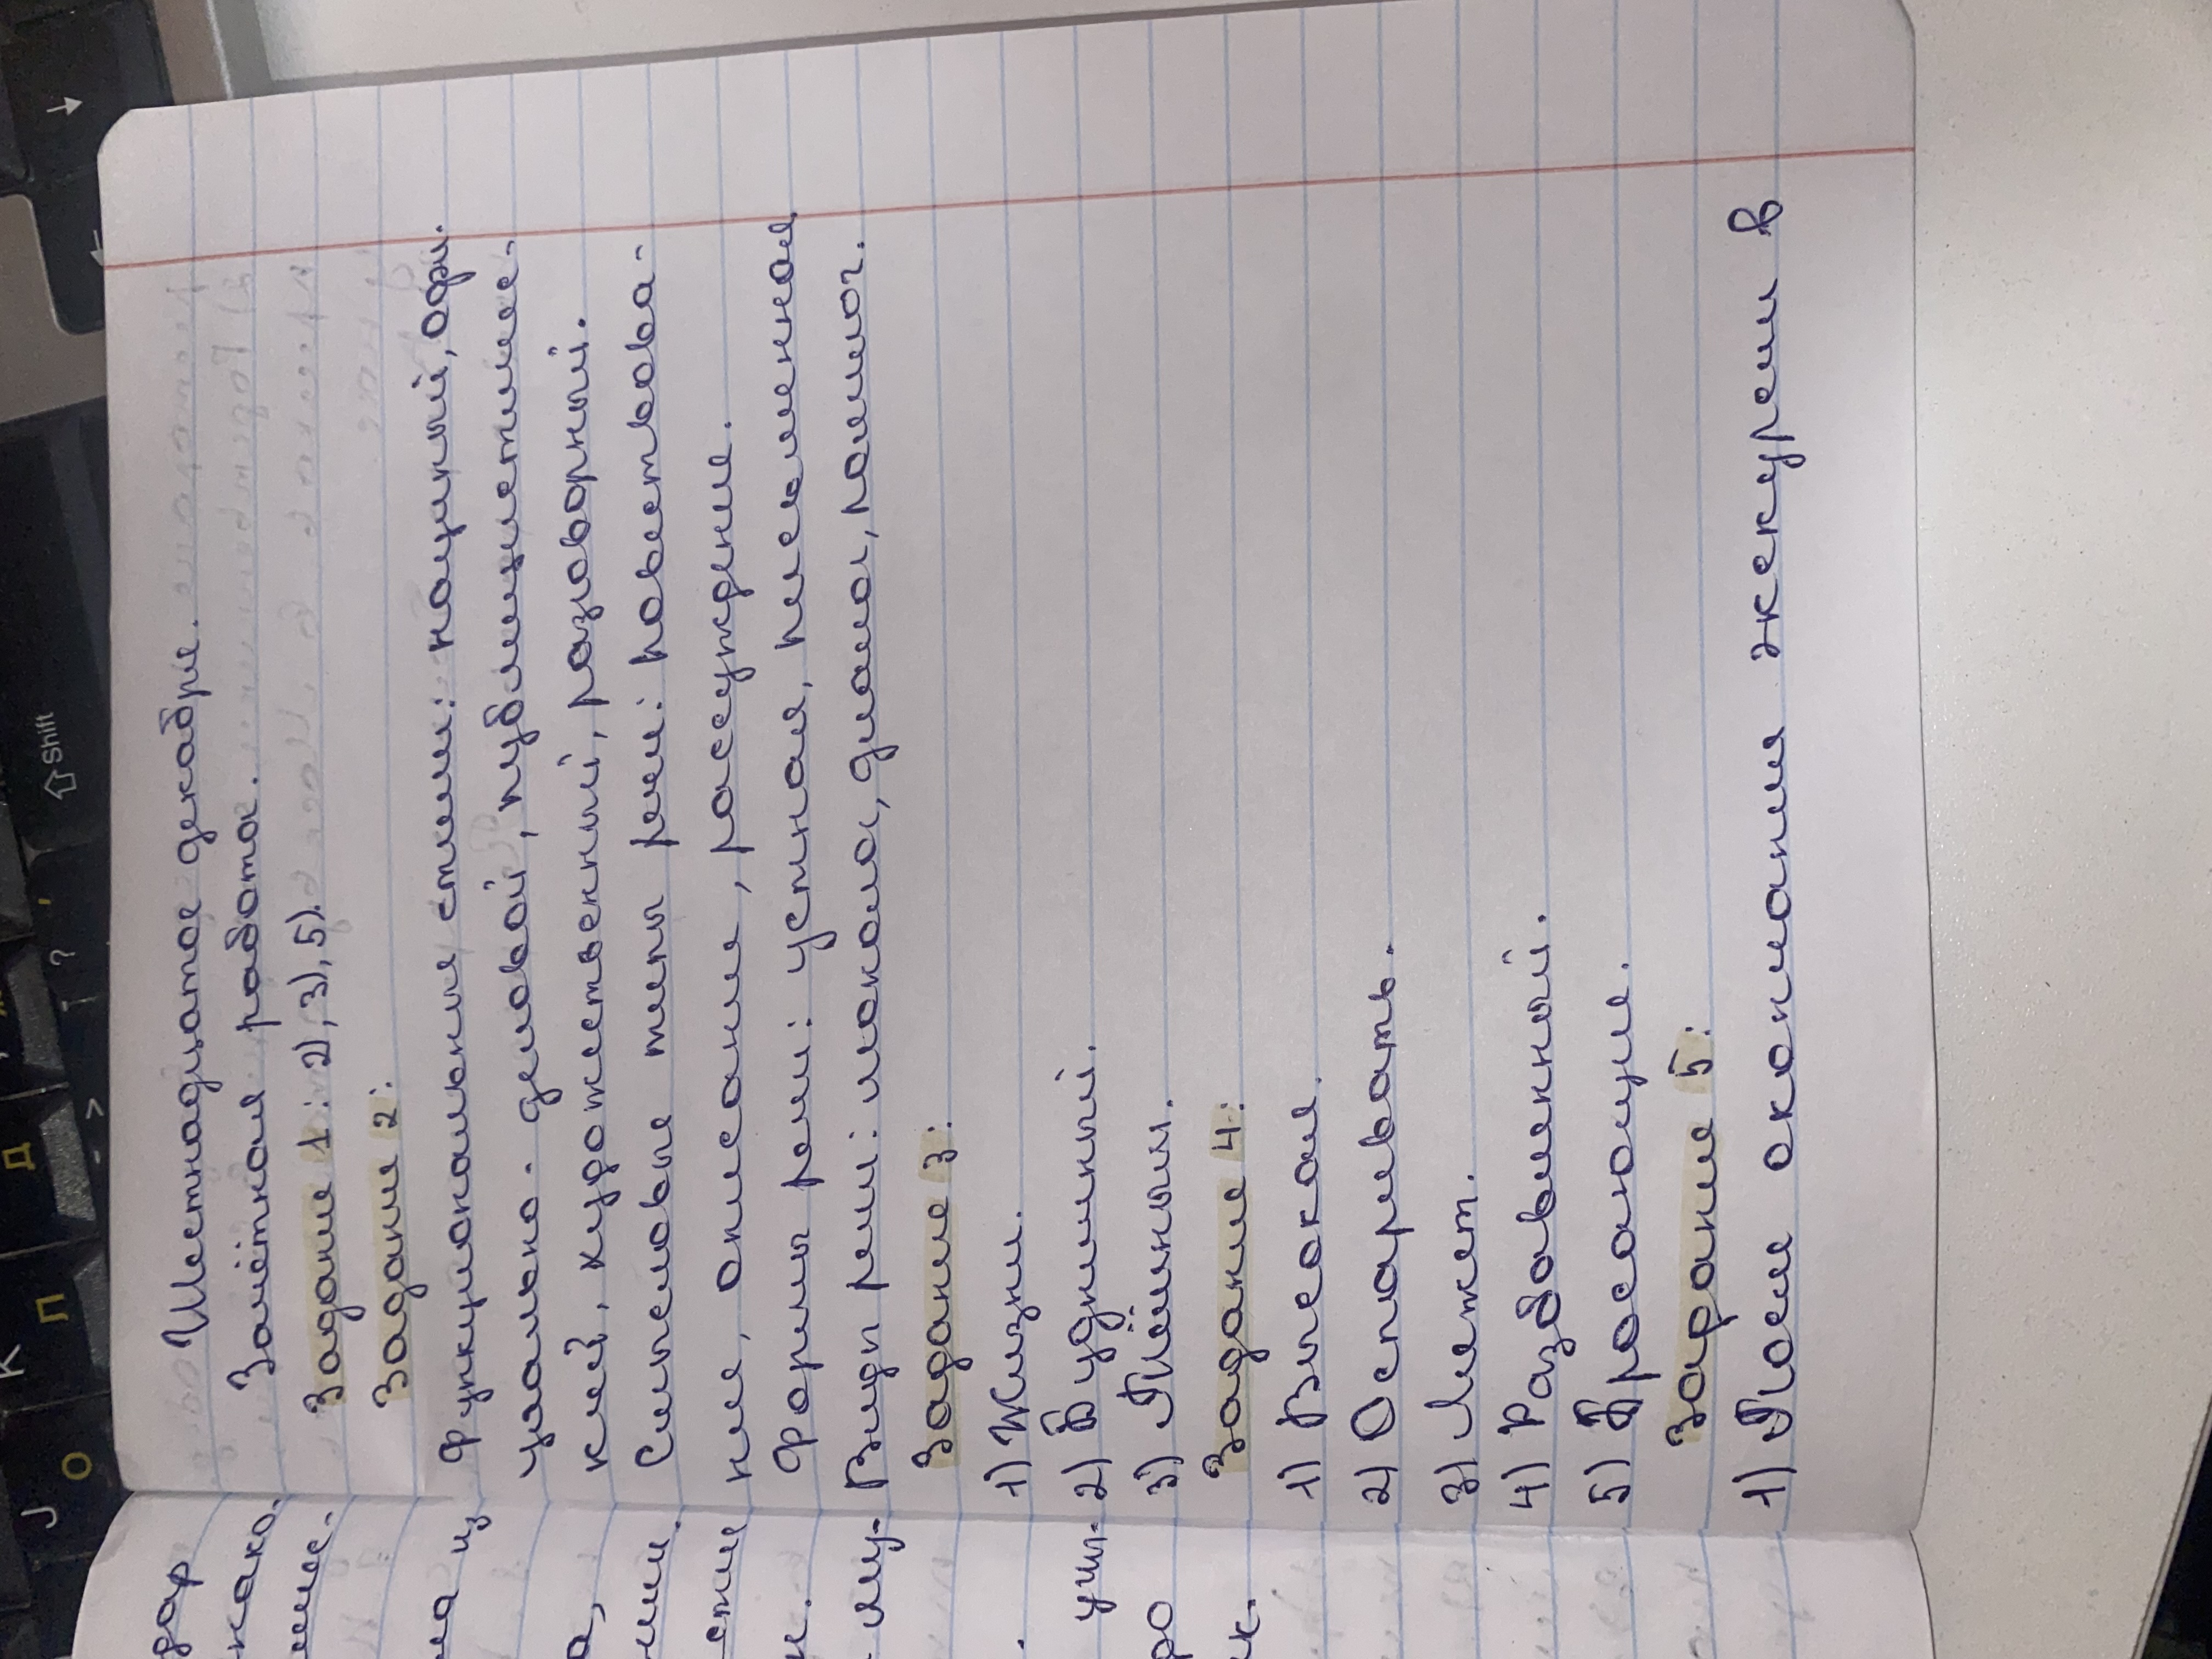 Шестнадцатое декабря.
Зачётная работа.
Задание 1: 2), 3), 5).
Задание 2:
Функциональные стили: научный, офи-
циально-деловой, публицистичес-
кий, художественный, разговорный.
Смысловые типы речи: повествова-
ние, описание, рассуждение.
Формы речи: устная, письменная
Виды речи: монолог, диалог, полилог.
Задание 3:
1) Жизни.
2) Будничный.
3) Тёмным.
Задание 4:
1) Высокая.
2) Оспаривать.
3) Лижет.
4) Разбавленный.
5) Бросающие.
Задание 5:
1) После окончания экскурсии в
дар
нако-
ма из
ении
уши-
ро
ик.
J
К
О
Л
Д
?
shift